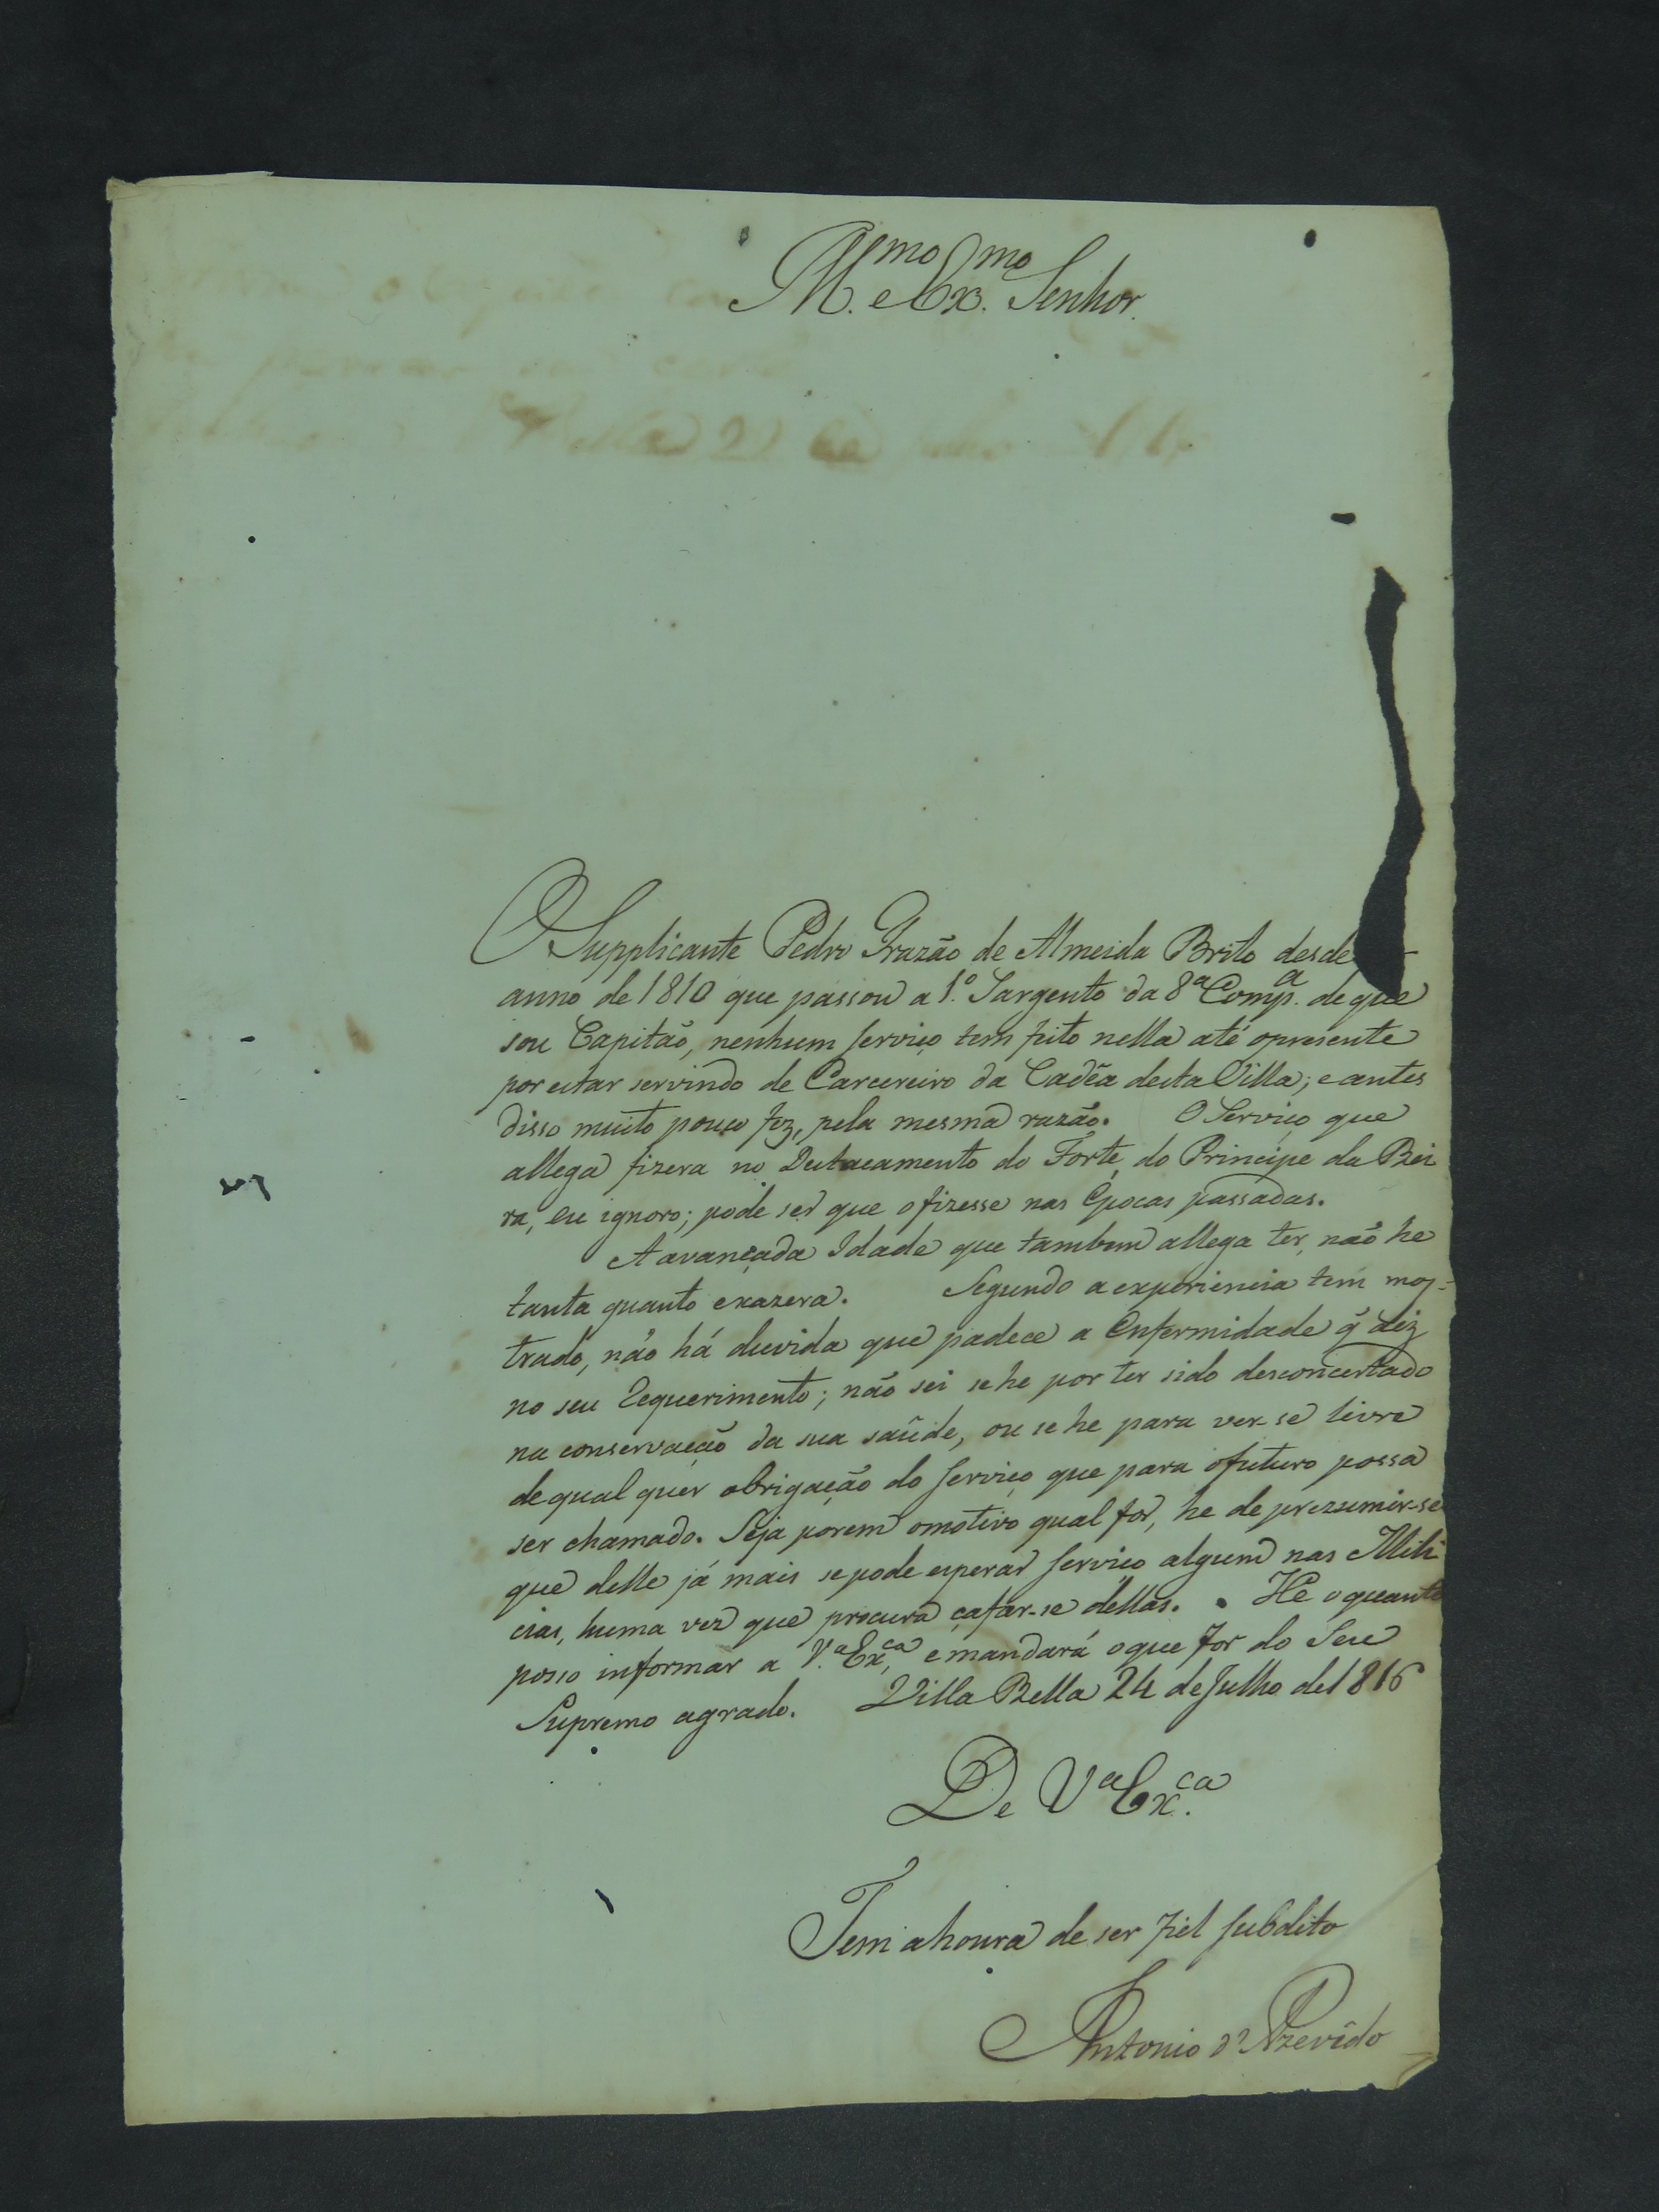 Ill.mo e Ex.mo Senhor.
O Supplicante Pedro Frazão de Almeida Brito desde
anno de 1810 que passou a 1.º Sargento da 8ª Comp.ª de que
sou Capitão, nenhum serviço tem feito nella até opresente
por estar servindo de Carcereiro da Cadêa desta Villa; e antes
disso muito pouco fez, pela mesma razão. O Serviço que
allega fizera no Destacamento do Forte do Principe da Bei
ra, eu ignoro; pode ser que ofizesse nas Épocas passadas.
A avançada Idade que tambem allega ter, não he
tanta quanto exazera. Segundo a experiencia tem mos-
trado, não há duvida que padece a Enfermidade q̃ diz
no seu Requerimento; não sei se he por ter sido desconcertado
na conservação da sua saúde, ou se he para ver-se livre
de qual quer obrigação do serviço que para ofuturo possa
ser chamado. Seja porem omotivo qual for, he de prezumir-se
que delle já mais sepode esperar serviço algum nas Mili
cias, huma vez que procura çafar-se dellas. He oquanto
posso informar a V.ª Ex.ca, e mandará oque for do Seu
Supremo agrado. Villa Bella 24 de Julho de 1816
De V.ª Ex.ca
Tem ahonra de ser fiel subdito
Antonio d'Azevêdo